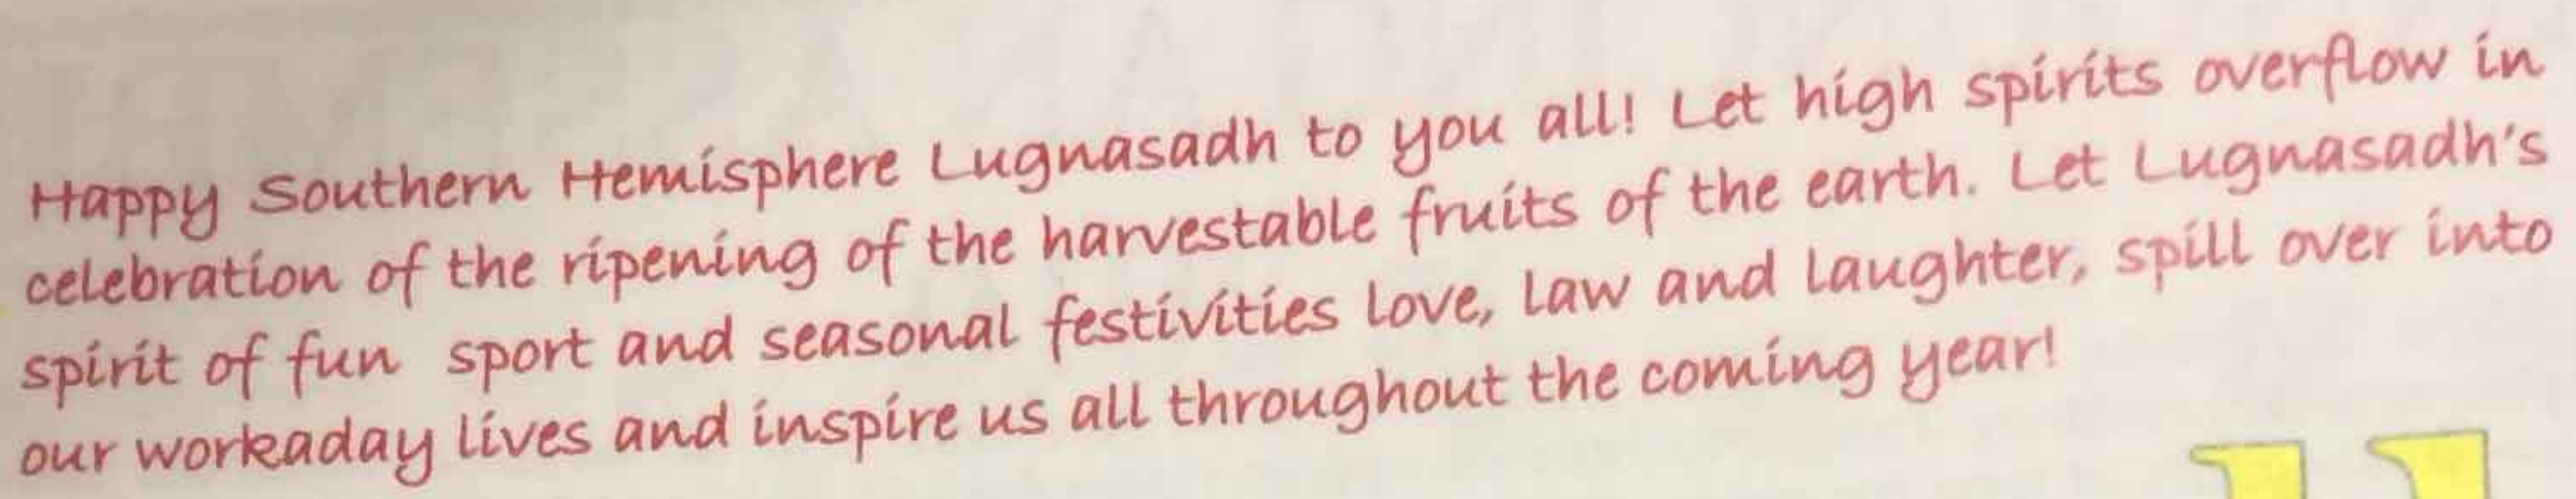 Happy Southern Hemisphere Lugnasadh to you all! Let high spirits overflow in
celebration of the ripening of the harvestable fruits of the earth. Let Lugnasadh's
spirit of fun sport and seasonal festivities love, law and laughter, spill over into
our workaday lives and inspire us all throughout the coming year!